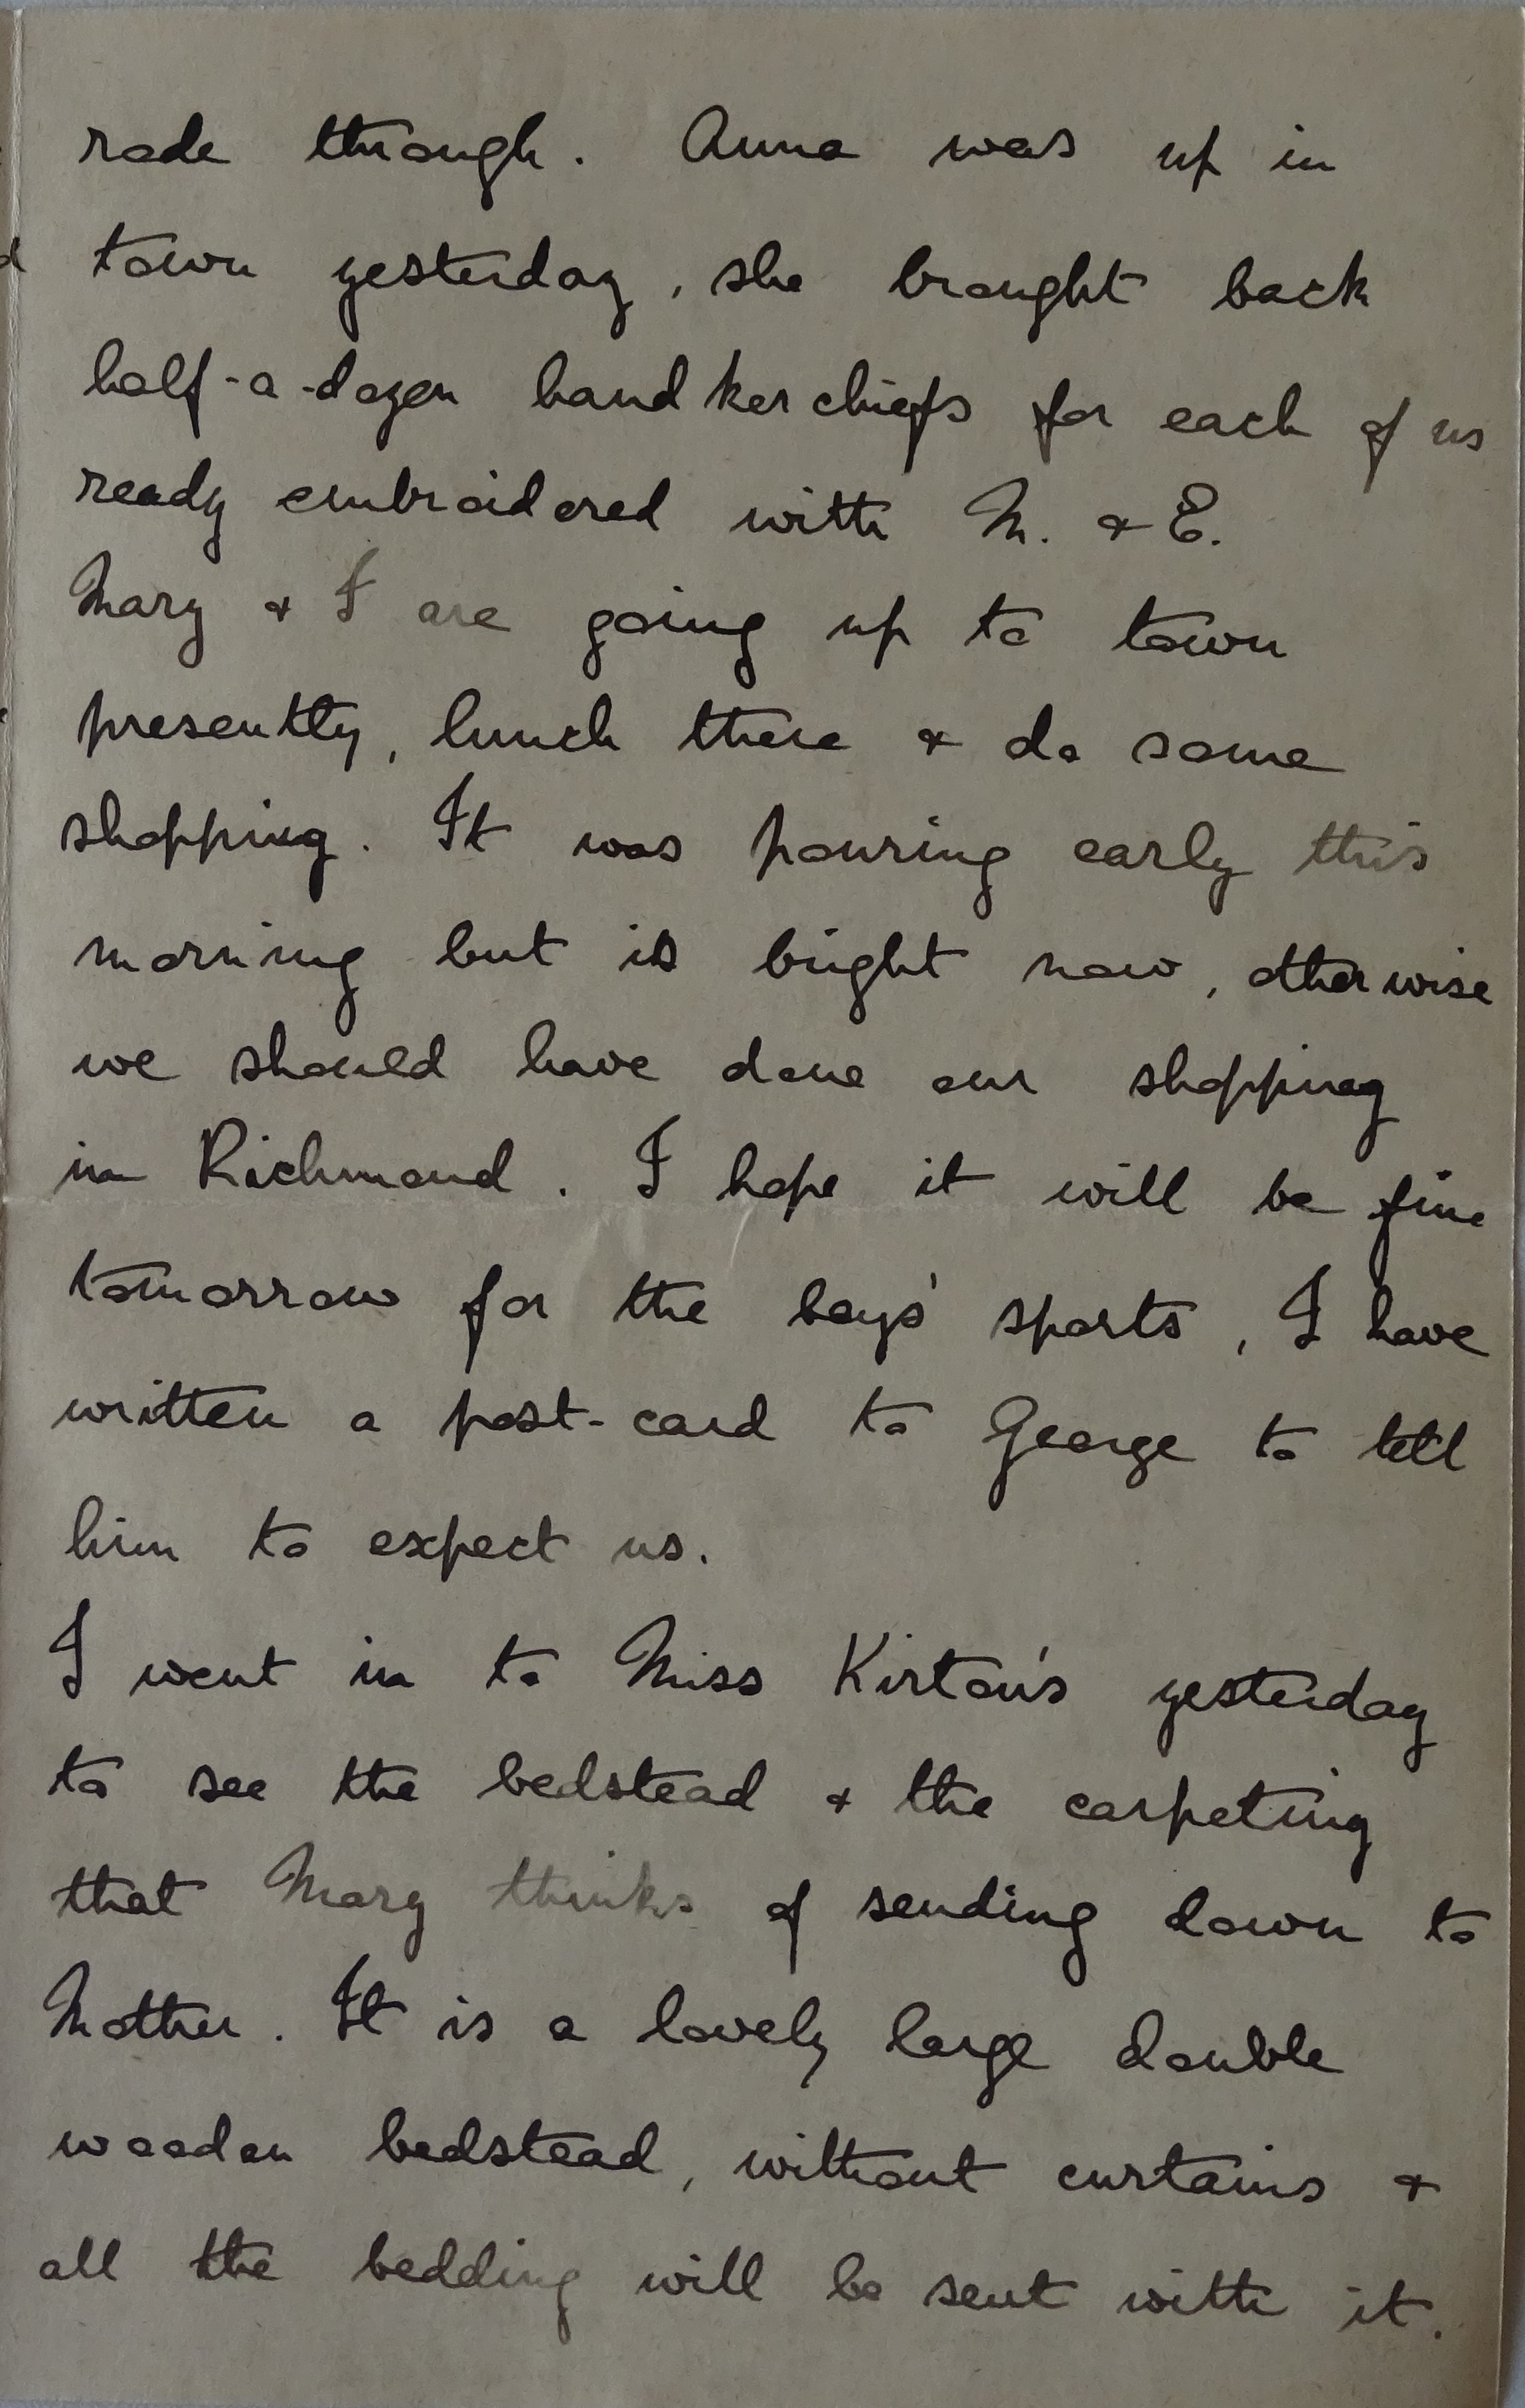 rode through. Anna was up in
town yesterday, she brought back
half-a-dozen handkerchiefs for each of us
ready embroidered with M. & E.
Mary & I are going up to town
presently, lunch there & do some
shopping. It was pouring early this
morning but is bright now, otherwise
we should have done our shopping
in Richmond. I hope it will be fine
tomorrow for the boys' sports, I have
written a post-card to George to tell
him to expect us.
I went in to Miss Kirton's yesterday
to see the bedstead & the carpeting
that Mary thinks of sending down to
Mother. It is a lovely large double
wooden bedstead, without curtains &
all the bedding will be sent with it.